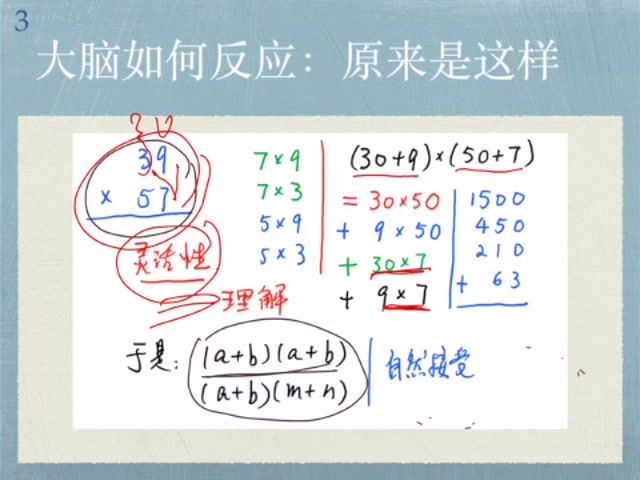 3
大脑如何反应：原来是这样
30
39
× 57
灵活性
理解
7×9
7×3
5×9
5×3
(30+9)×(50+7)
= 30×50
+ 9×50
+ 30×7
+ 9×7
1500
450
210
+ 63
于是:
(a+b)(a+b)
(a+b)(m+n)
自然接受